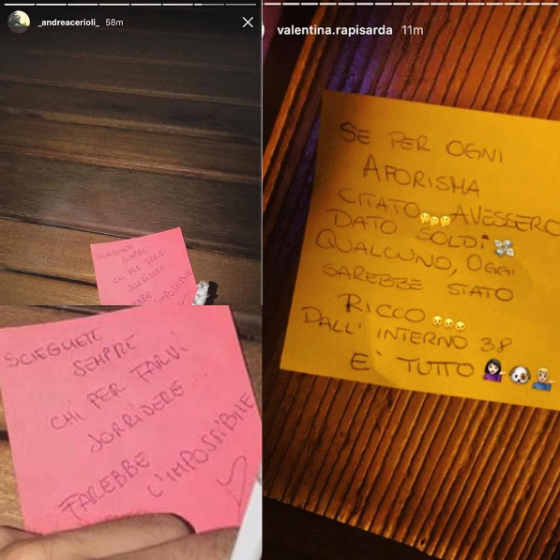 _andreacerioli_ 58m
SCIEGLIETE
SEMPRE
CHI PER FARVI
SORRIDERE
FAREBBE
L'IMPOSSIBILE
SCIEGLIETE
SEMPRE
CHI PER FARVI
SORRIDERE
FAREBBE
L'IMPOSSIBILE
valentina.rapisarda 11m
SE PER OGNI
AFORISMA
CITATO AVESSERO
DATO SOLDI
QUALCUNO, OGGI
SAREBBE STATO
RICCO
DALL'INTERNO 38
E' TUTTO